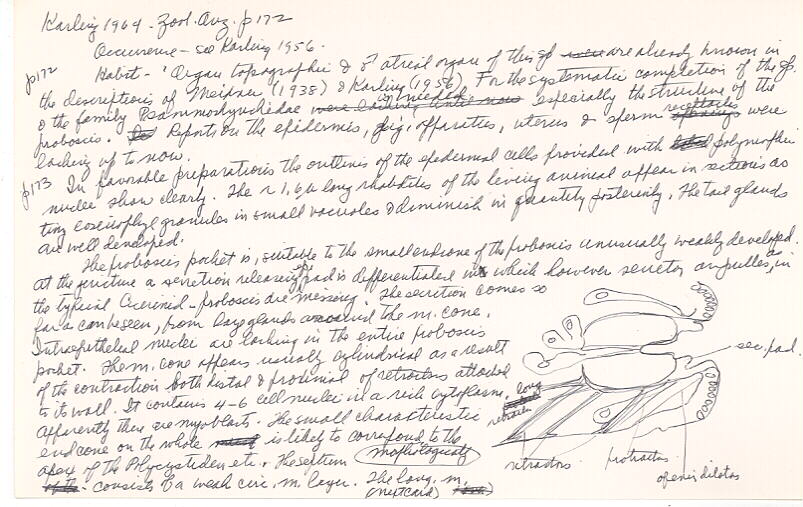 Karling 1964. Zool. Anz. p 172
Occurrence - see Karling 1956.
p172 Habit - "Organ topographie & ♂ atrial organ of this sp. are already known in
the descriptions of Meixner (1938) & Karling (1956) For the systematic completion of the sp.
& the family Psammorhynchidae were lacking until now needed especially the structure of the
proboscis. Reports on the epidermis, dig. apparatus, uterus & sperm receptacles were
lacking up to now.
p173 In favorable preparations the outlines of the epidermal cells provided with polymorphic
nuclei show clearly. The ~ 1,6µ long rhabdites of the living animal appear in sections as
tiny eosinophyl granules in small vacuoles & diminish in quantity posteriorly. The tail glands
are well developed.
The proboscis pocket is, suitable to the small endcone of the proboscis unusually weakly developed.
At the juncture a secretion releasing pad is differentiated in which however secretory ampullae, as in
the typical Cicerinid-proboscis are missing. The secretion comes so
far as can be seen, from large glands around the m. cone.
Intraepithelial nuclei are lacking in the entire proboscis
pocket. The m. cone appears usually cylindrical as a result
of the contraction both distal & proximal of retractors attached
to its wall. It contains 4-6 cell nuclei in a rich cytoplasm.
Apparently these are myoblasts. The small characteristic
endcone on the whole is likely to correspond to the
apex of the Polycystiden etc. morphologically The septum
consists of a weak circ. m. layer. The long. m.
(next card)
sec. pad.
long
retractors
retractors
protractors
opener dilators